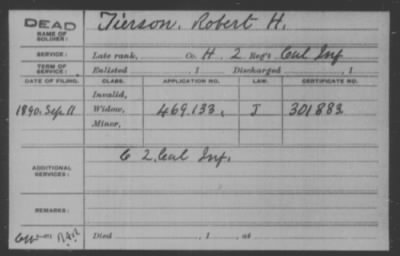 DEAD
NAME OF SOLDIER: Tierson, Robert H.
SERVICE: Late rank, Co. H, 2 Reg't Cal Inf
TERM OF SERVICE: Enlisted , 1 Discharged , 1
DATE OF FILING. CLASS. APPLICATION NO. LAW. CERTIFICATE NO.
Invalid,
1890. Sep. 11 Widow, 469.133, J 301883
Minor,
ADDITIONAL SERVICES: G 2, Cal Inf.
REMARKS:
Died , 1 , at